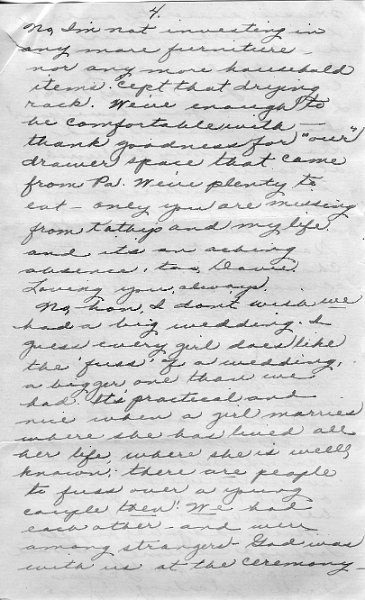 4.
No, I'm not investing in
any more furniture –
nor any more household
items. 'Cept that drying
rack. We've enough to
be comfortable with –
thank goodness for "our"
drawer space that came
from Pa. We've plenty to
eat – only you are missing
from and my life.
and it's an aching
absence, too, Davie.
Loving you, always.
No, hon, I don't wish we
had a big wedding. I
guess every girl does like
the 'fuss' of a wedding,
a bigger one than we
had. It's practical and
nice when a girl marries
where she has lived all
her life, where she is well
known; there are people
to fuss over a young
couple then! We had
each other – and were
among strangers – God was
with us at the ceremony –